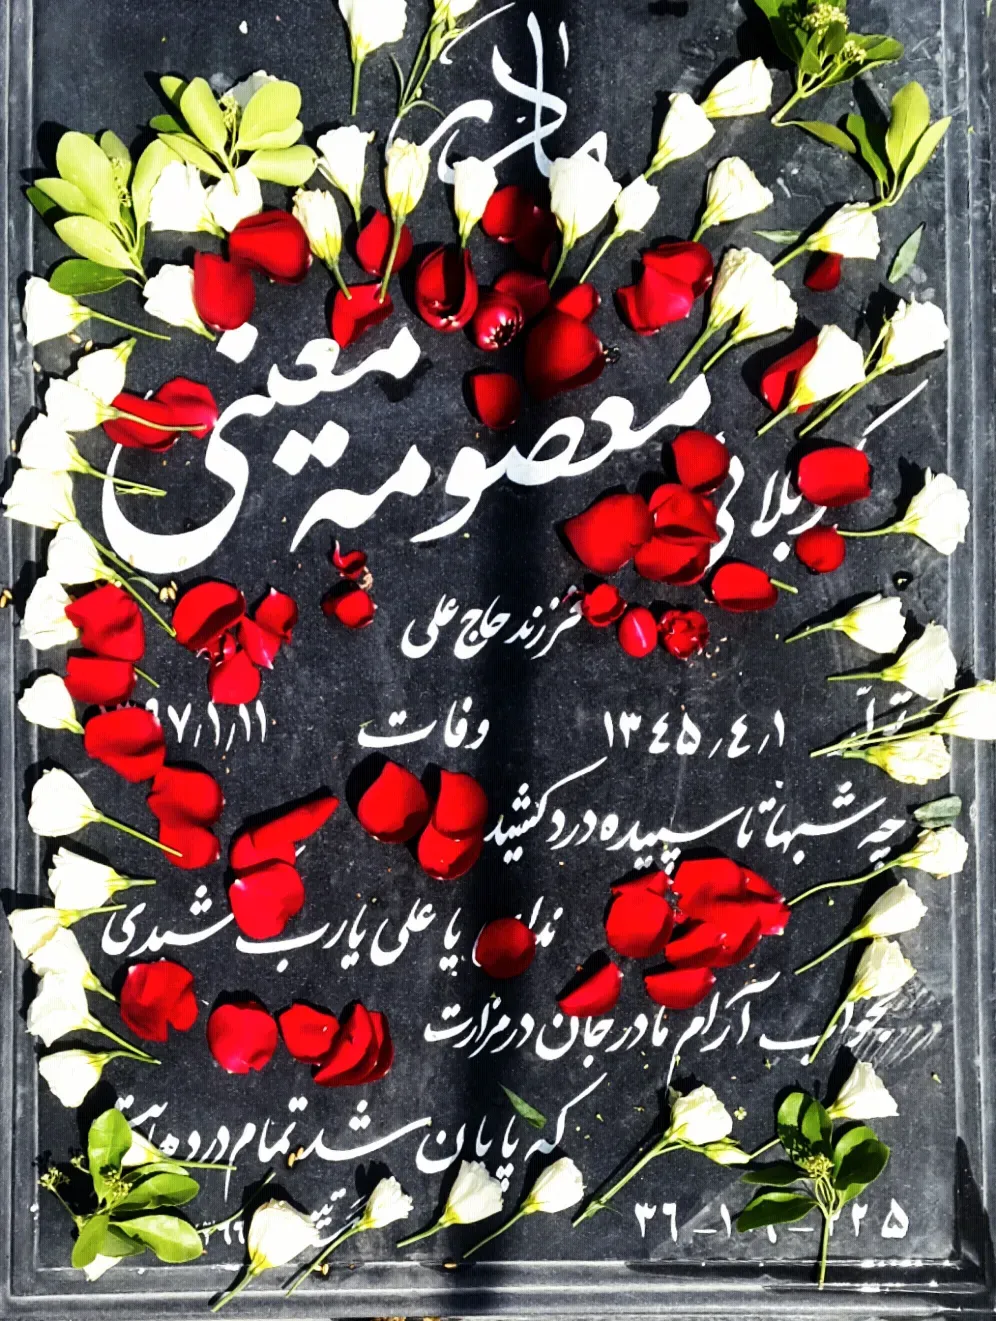 مادری
معصومه معینی
کربلائی
فرزند حاج علی
تولد ۱۳۴۵٫۴٫۱ وفات ۹۷٫۱٫۱۱
چه شبها تا سپیده درد کشیدی
ندای یا علی یارب شدی
بخواب آرام مادر جان در مزارت
که پایان شد تمام درده‌ایت
۳۶